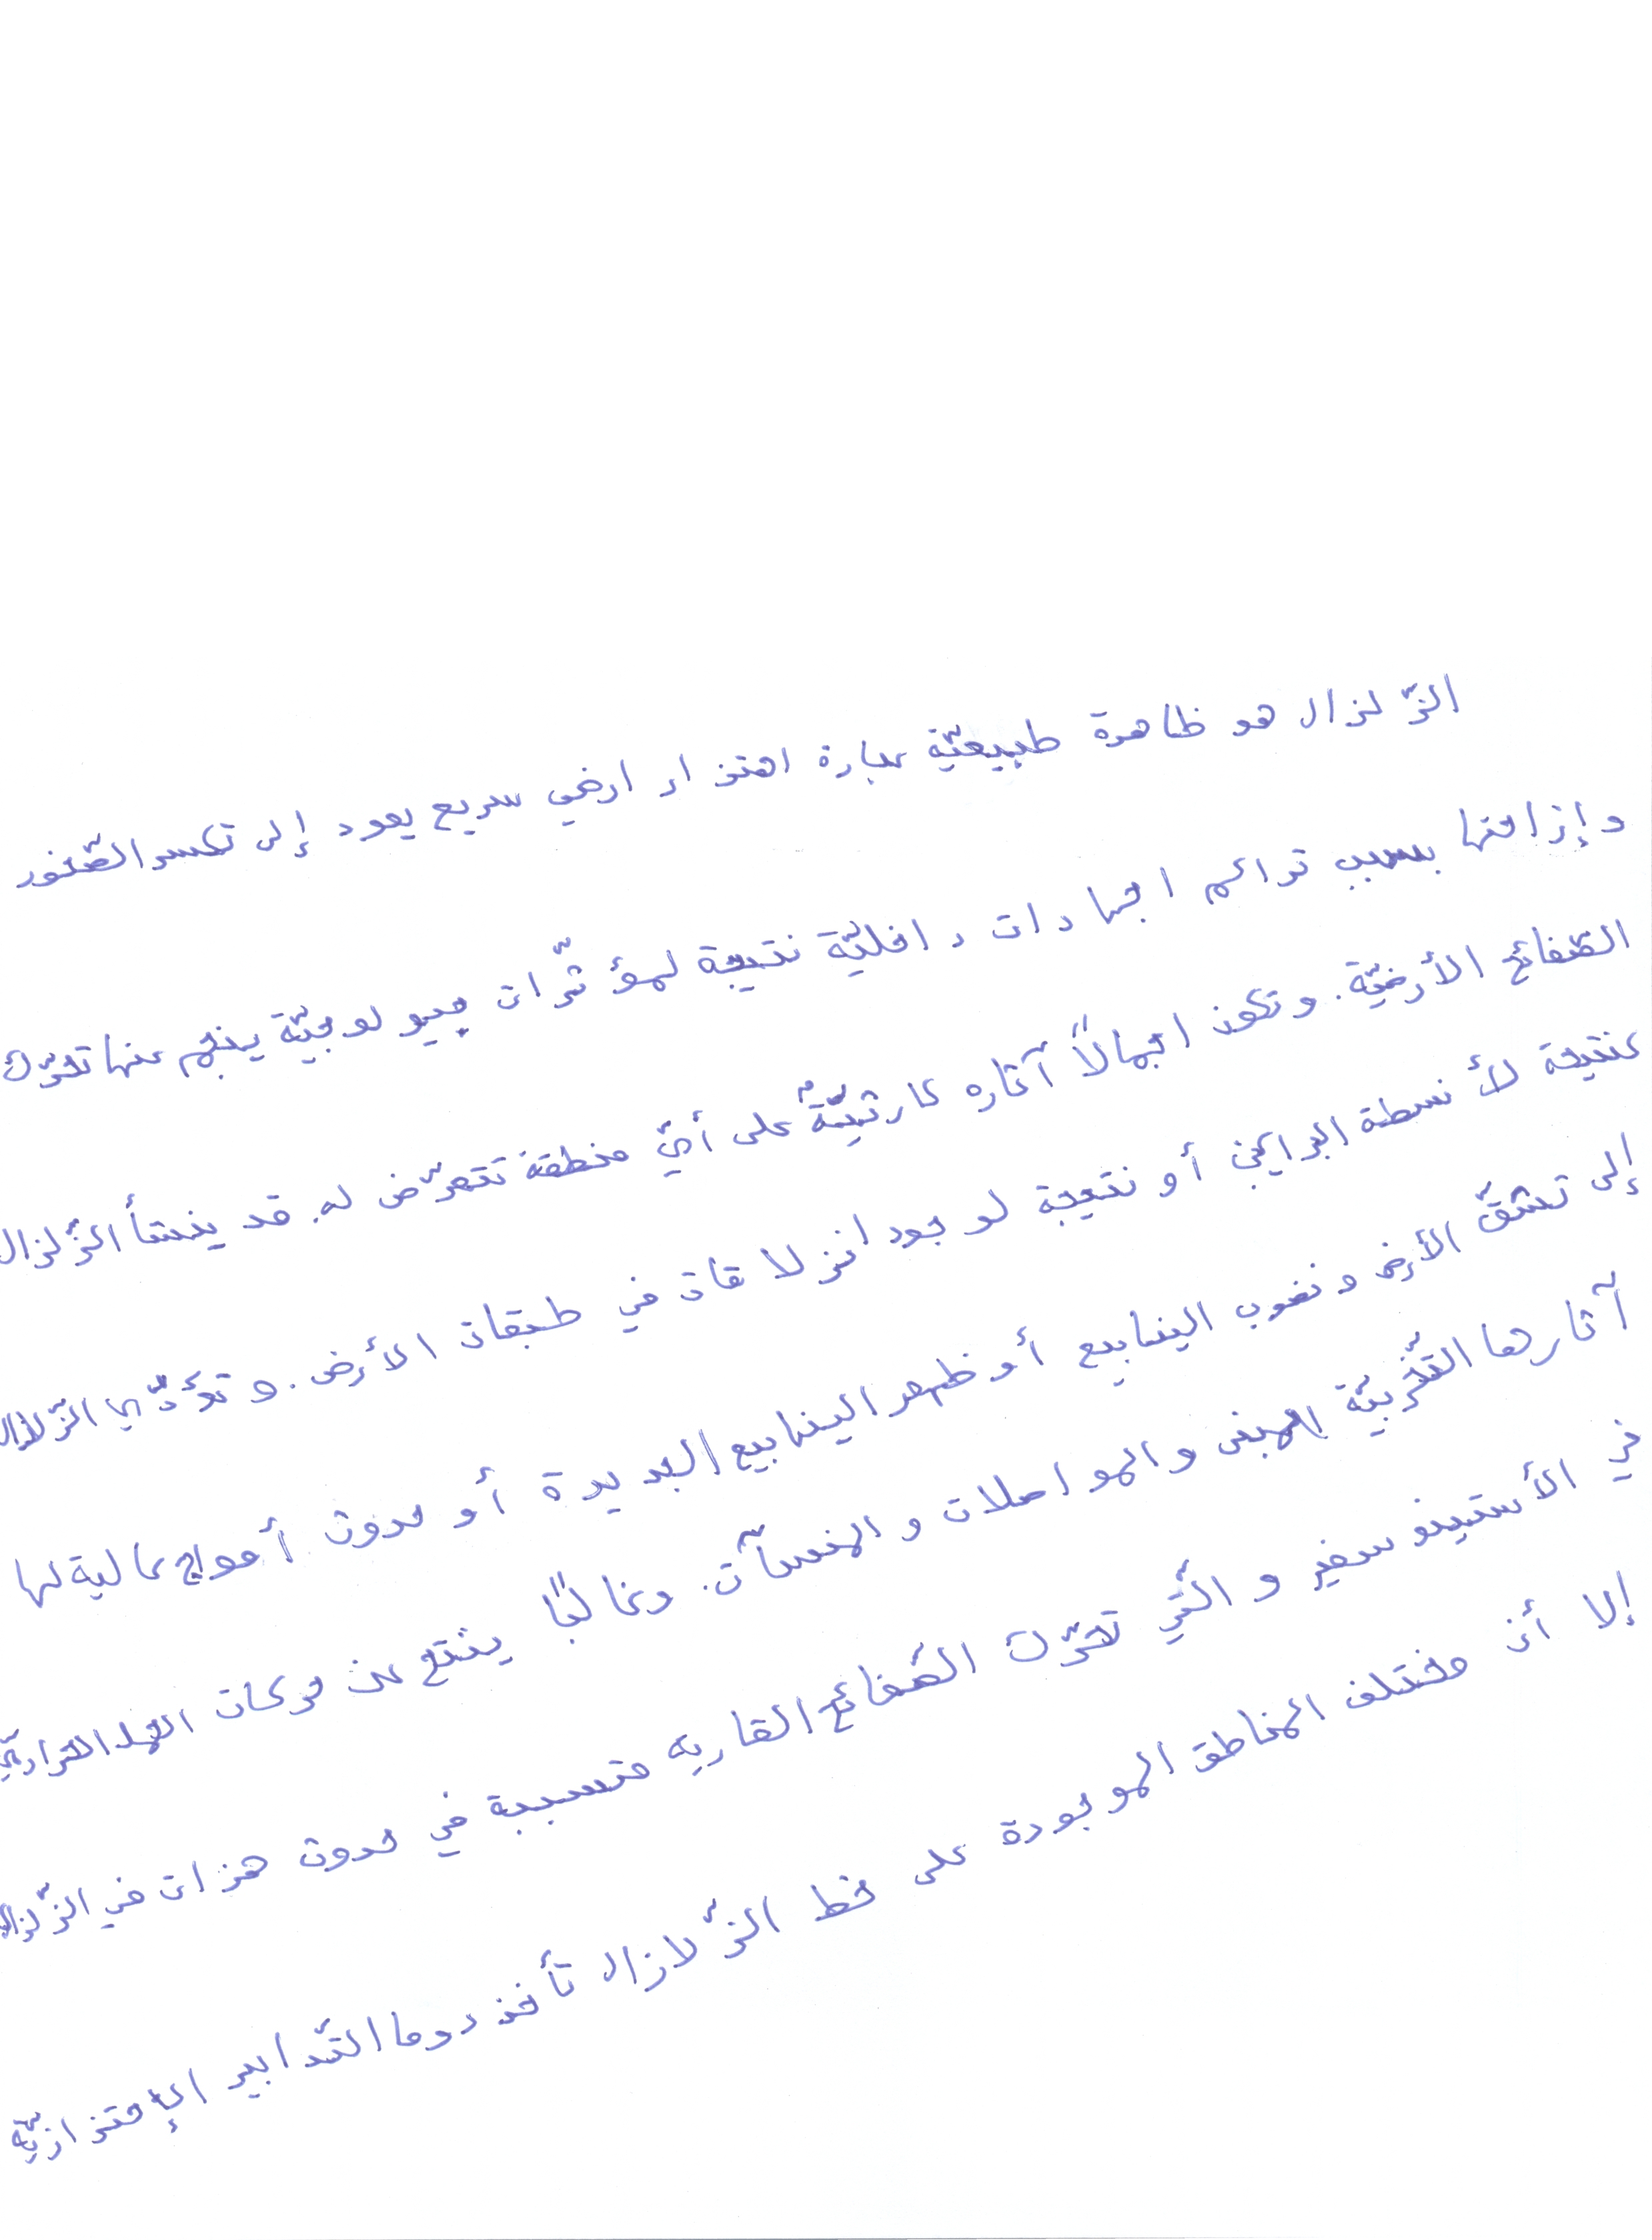 الزّلزال هو ظاهرة طبيعيّة عبارة اهتزاز ارضي سريع يعود إلى تكسر الصّخور
وإزاحتها بسبب تراكم اجهادات داخليّة نتيجة لمؤثّرات جيولوجيّة ينجم عنها تحرّك
الصّفائح الأرضيّة. وتكون اجمالاً آثاره كارثيّةٌ على أيّ منطقة تتعرّض له. قد ينشأ الزّلزال
كنتيجة لأنشطة البراكين أو نتيجة لوجود انزلاقات في طبقات الأرض. و تؤدّي الزّلازل
إلى تشقّق الأرض و نضوب الينابيع أو ظهور الينابيع الجديدة أو حدوث أمواج عالية لها
آثارها التّخريبيّة المبنى والمواصلات و المنشآت. وغالبًا ينتج عن حركات الحمل الحراريّ
في الأستينوسفير و الّتي تحرّك الصّفائح القاريه متسببة في حدوث هزات في الزّلازل
إلا أن مختلف المناطق الموجودة على خط الزّلازل تأخذ دوما التّدابير الإحترازيّة